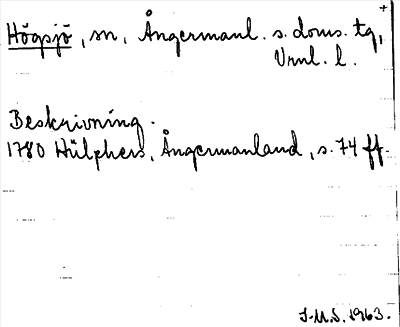 Högsjö, sn, Ångermanl. s. doms. tg,
Vrnl. l.
Beskrivning.
1780 Hülphers, Ångermanland, s. 74 ff.
J.M.S. 1963.